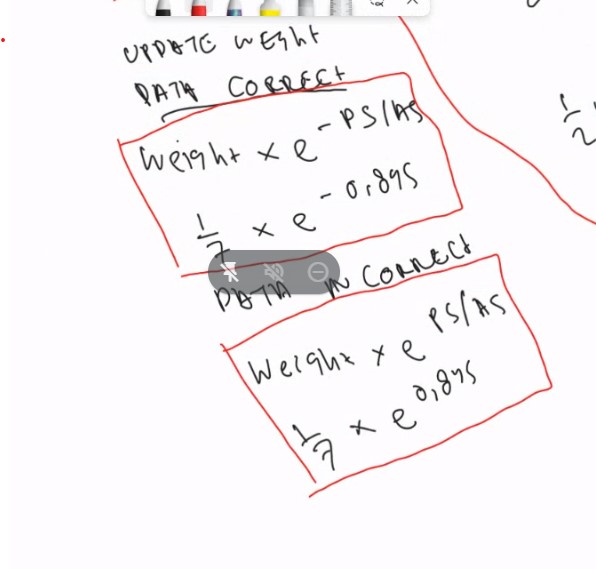 UPDATE WEIGHT
DATA CORRECT
Weight × e^-PS/AS
1/7 × e^-0,895
DATA INCORRECT
Weight × e^PS/AS
1/7 × e^0,895
1/2